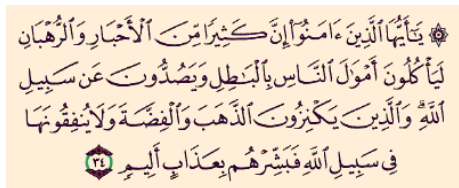 ۞ يَٰٓأَيُّهَا ٱلَّذِينَ ءَامَنُوٓاْ إِنَّ كَثِيرٗا مِّنَ ٱلۡأَحۡبَارِ وَٱلرُّهۡبَانِ
لَيَأۡكُلُونَ أَمۡوَٰلَ ٱلنَّاسِ بِٱلۡبَٰطِلِ وَيَصُدُّونَ عَن سَبِيلِ
ٱللَّهِۗ وَٱلَّذِينَ يَكۡنِزُونَ ٱلذَّهَبَ وَٱلۡفِضَّةَ وَلَا يُنفِقُونَهَا
فِي سَبِيلِ ٱللَّهِ فَبَشِّرۡهُم بِعَذَابٍ أَلِيمٖ ٣٤